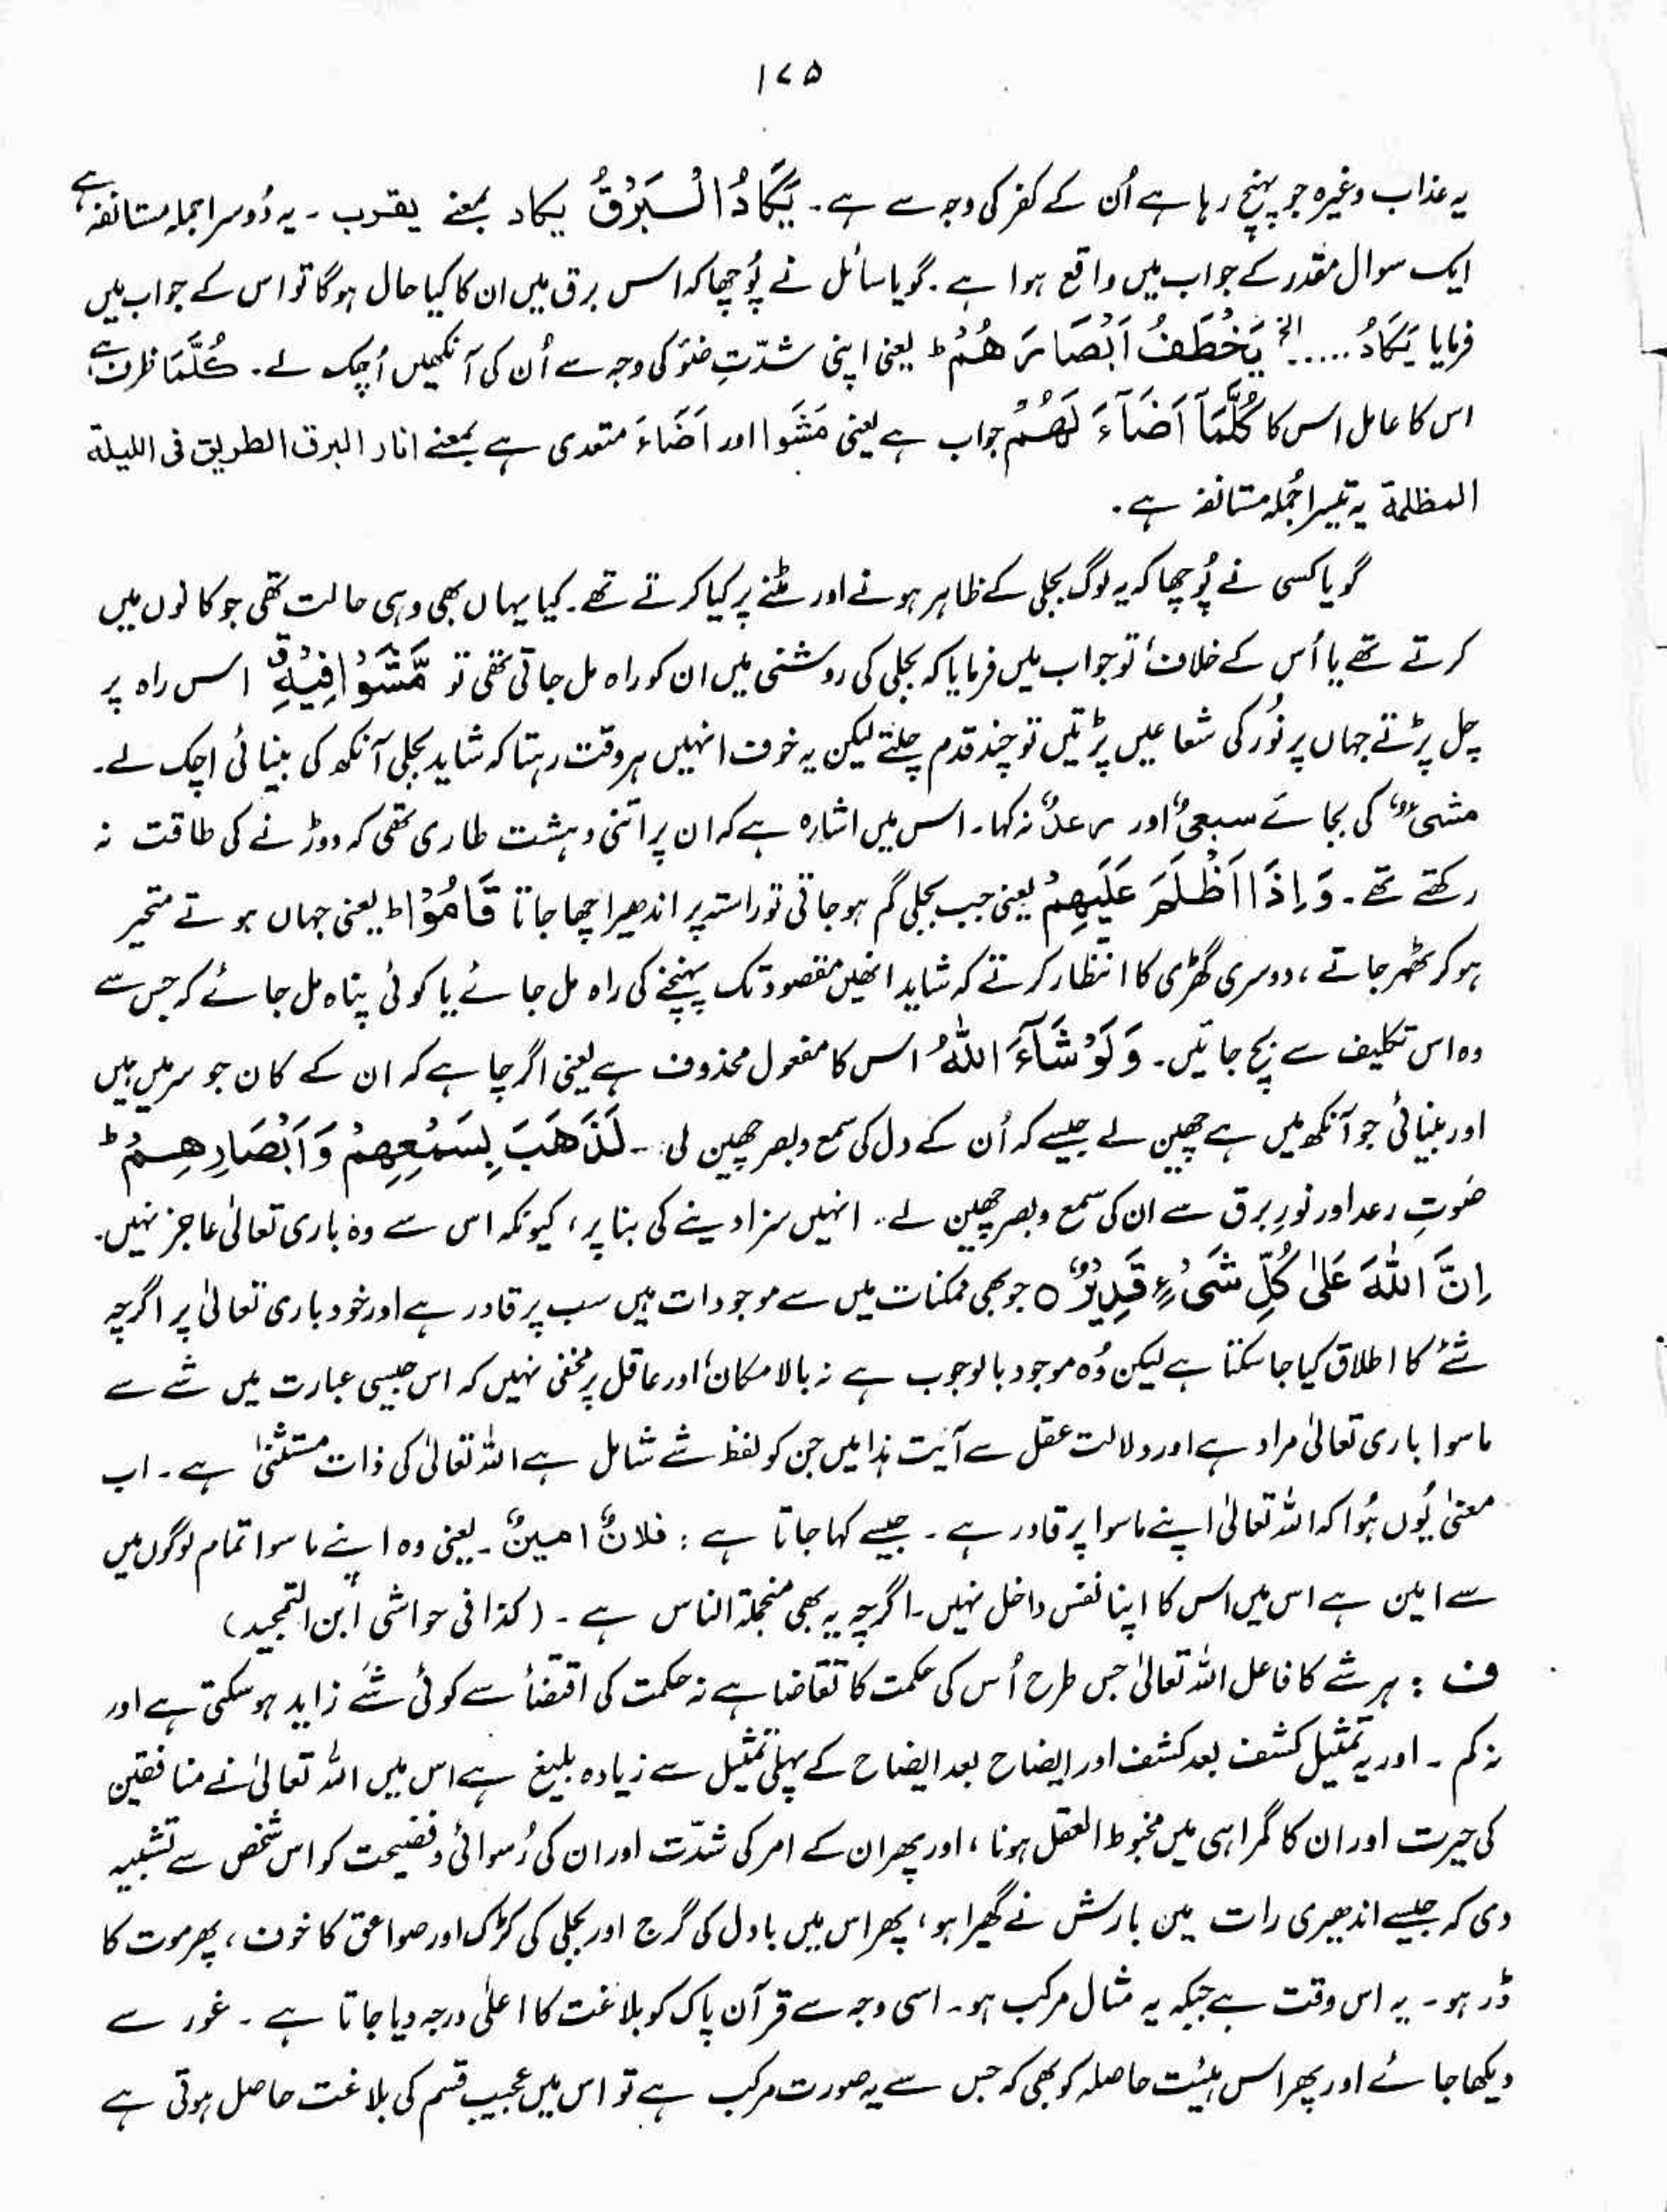 ۱۷۵
یہ عذاب وغیرہ جو پہنچ رہا ہے اُن کے کفر کی وجہ سے ہے۔ یَکَادُ الْبَرْقُ یکاد بمعنے یقرب ۔ یہ دُوسرا جملہ مستانفہ ہے
ایک سوال مقدر کے جواب میں واقع ہوا ہے ۔ گویا سائل نے پُوچھا کہ اس برق میں ان کا کیا حال ہوگا تو اس کے جواب میں
فرمایا یَکَادُ ..... الخ یَخْطَفُ اَبْصَارَهُمْ ط یعنی اپنی شدّتِ ضَو کی وجہ سے اُن کی آنکھیں اُچک لے۔ کُلَّمَا ظرف ہے
اس کا عامل اس کا کُلَّمَآ اَضَآءَ لَهُمْ جواب ہے یعنی مَشَوا اور اَضَاءَ متعدی ہے بمعنے انار البرق الطریق فی اللیلة
المظلمة یہ تیسرا جُملہ مستانفہ ہے ۔
گویا کسی نے پُوچھا کہ یہ لوگ بجلی کے ظاہر ہونے اور مٹنے پر کیا کرتے تھے۔ کیا یہاں بھی وہی حالت تھی جو کانوں میں
کرتے تھے یا اُس کے خلاف؟ تو جواب میں فرمایا کہ بجلی کی روشنی میں ان کو راہ مل جاتی تھی تو مَّشَوْا فِیْهِ ق اس راہ پر
چل پڑتے جہاں پر نُور کی شعاعیں پڑتیں تو چند قدم چلتے لیکن یہ خوف انہیں ہر وقت رہتا کہ شاید بجلی آنکھ کی بینائی اچک لے۔
مشیٌ کی بجائے سعیٌ اور عدوٌ نہ کہا۔ اس میں اشارہ ہے کہ ان پر اتنی دہشت طاری تھی کہ دوڑنے کی طاقت نہ
رکھتے تھے ۔ وَ اِذَا اَظْلَمَ عَلَیْهِمْ یعنی جب بجلی گم ہوجاتی تو راستہ پر اندھیرا چھا جاتا قَامُوْا ط یعنی جہاں ہوتے متحیر
ہو کر ٹھہر جاتے ، دوسری گھڑی کا انتظار کرتے کہ شاید انھیں مقصود تک پہنچنے کی راہ مل جائے یا کوئی پناہ مل جائے کہ جس سے
وہ اس تکلیف سے بچ جائیں۔ وَ لَوْ شَآءَ اللّٰهُ اس کا مفعول محذوف ہے یعنی اگر چاہے کہ ان کے کان جو سر میں ہیں
اور بینائی جو آنکھ میں ہے چھین لے جیسے کہ اُن کے دل کی سمع و بصر چھین لی ۔ لَذَهَبَ بِسَمْعِهِمْ وَ اَبْصَارِهِمْ ط
صَوتِ رعد اور نورِ برق سے ان کی سمع و بصر چھین لے۔ انہیں سزا دینے کی بنا پر، کیونکہ اس سے وہ باری تعالیٰ عاجز نہیں۔
اِنَّ اللّٰهَ عَلٰی کُلِّ شَیْءٍ قَدِیْرٌ ○ جو بھی ممکنات میں سے موجودات ہیں سب پر قادر ہے اور خود باری تعالیٰ پر اگرچہ
شئے کا اطلاق کیا جا سکتا ہے لیکن وُہ موجود بالوجوب ہے نہ بالامکان، اور عاقل پر مخفی نہیں کہ اس جیسی عبارت میں شے سے
ماسوا باری تعالیٰ مراد ہے اور دلالت عقل سے آیت ہذا میں جن کو لفظ شے شامل ہے اللہ تعالیٰ کی ذات مستثنیٰ ہے۔ اب
معنیٰ یُوں ہُوا کہ اللہ تعالیٰ اپنے ماسوا پر قادر ہے ۔ جیسے کہا جاتا ہے : فلانٌ امینٌ ۔ یعنی وہ اپنے ما سوا تمام لوگوں میں
سے امین ہے اس میں اس کا اپنا نفس داخل نہیں۔ اگرچہ یہ بھی منجملۃ الناس ہے ۔ (کذا فی حواشی ابن التمجید)
ف : ہر شے کا فاعل اللہ تعالیٰ جس طرح اُس کی حکمت کا تقاضا ہے نہ حکمت کی اقتضأ سے کوئی شَے زاید ہوسکتی ہے اور
نہ کم ۔ اور یہ تمثیل کشف بعد کشف اور ایضاح بعد ایضاح کے پہلی تمثیل سے زیادہ بلیغ ہے اس میں اللہ تعالیٰ نے منافقین
کی حیرت اور ان کا گمراہی میں مخبوط العقل ہونا ، اور پھر ان کے امر کی شدّت اور ان کی رُسوائی و فضیحت کو اس شخص سے تشبیہ
دی کہ جیسے اندھیری رات میں بارش نے گھیرا ہو، پھر اس میں بادل کی گرج اور بجلی کی کڑک اور صواعق کا خوف ، پھر موت کا
ڈر ہو۔ یہ اس وقت ہے جبکہ یہ مثال مرکب ہو۔ اسی وجہ سے قرآن پاک کو بلاغت کا اعلیٰ درجہ دیا جاتا ہے ۔ غور سے
دیکھا جائے اور پھر اس ہیئت حاصلہ کو بھی کہ جس سے یہ صورت مرکب ہے تو اس میں عجیب قسم کی بلاغت حاصل ہوتی ہے